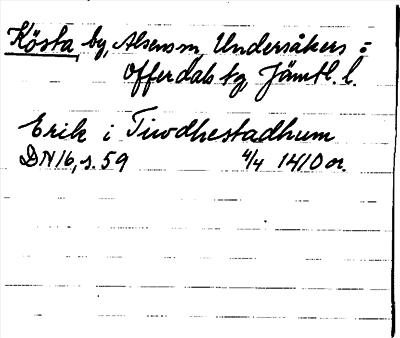 Kösta, by, Alsens sn, Undersåkers o
Offerdals tg, Jämtl. l.
Erik i Tiwdhestadhum
DN 16, s. 59 4/4 1410 or.